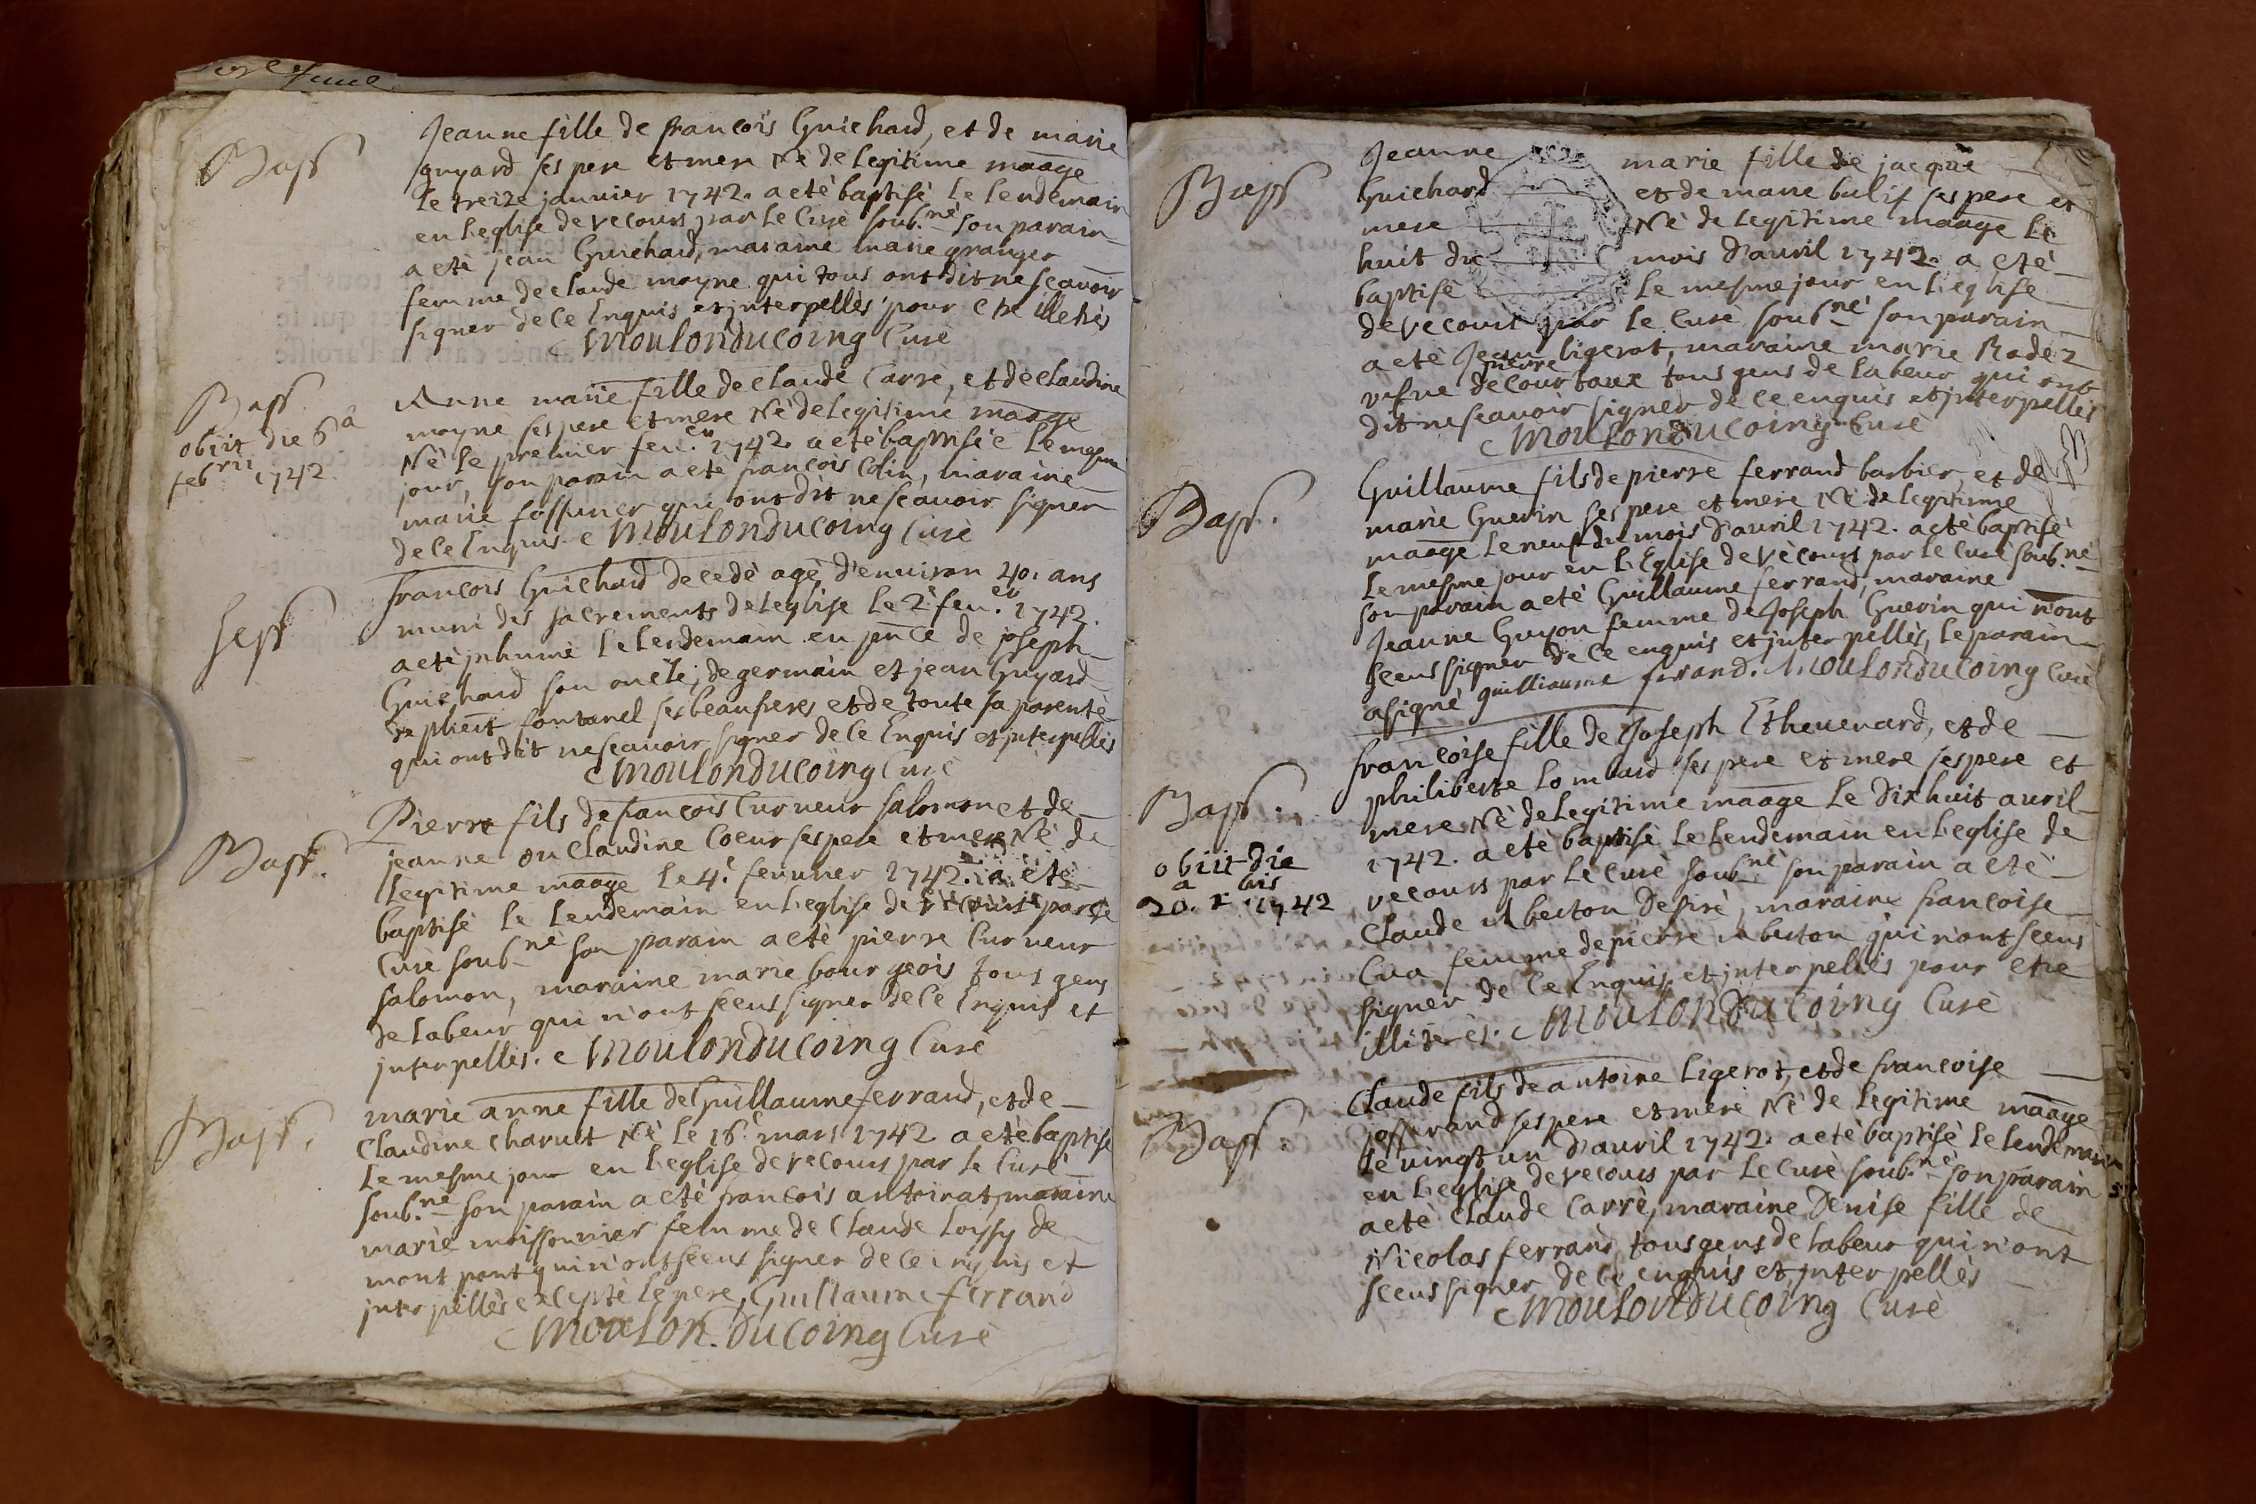 Bapt
Jeanne fille de francois Guichard, et de marie
guyard ses pere et mere Nè de legitime maage
le treize janvier 1742. a etè baptisè le lendemain
en l'eglise de vecours par le Curè soub.nè son parain
a etè jean Guichard, maraine marie granger
femme de claude moyne qui tous ont dit ne scavoir
signer de ce Enquis et interpellès pour etre illetrès
Moulonducoing Curè
Bapt
obiit die 6a
febrii 1742
Anne marie fille de claude Carrè, et de claudine
moyne ses pere et mere Nè de legitime maage
Nè le premier feu.er 1742. a etè baptisèe le mesme
jour, son parain a etè francois Colin, maraine
marie fossurier qui ont dit ne scavoir signer
de ce Enquis. Moulonducoing Curè
Sept
francois Guichard decedè agè d'environ 40. ans
muni des sacrements de leglise le 2e feu.er 1742.
a etè jnhumè le lendemain en pnce de joseph
Guichard son oncle, de germain et jean Guyard
de plieut fontanel ses beaufreres et de toute sa parentè
qui ont dit ne scavoir signer de ce Enquis et jnterpellès
Moulonducoing Curè
Bapt.
Pierre fils de francois Curveur salomon et de
jeanne ou Claudine Coeur ses pere et mere Nè de
legitime maage le 4.e fevrier 1742. a etè
baptisè le lendemain en l'eglise de vècours par le
Curè soub.nè son parain a etè pierre Curveur
salomon, maraine marie bourgeois tous gens
de labeur qui n'ont sceus signer de ce Enquis et
jnterpellès. Moulonducoing Curè
Bapt.
marie anne fille de Guillaume ferrand, et de
Claudine Charuet Nè le 16.e mars 1742 a etè baptise
le mesme jour en l'eglise de vecours par le Curè
soub.nè son parain a etè francois antoinat, maraine
marie moissonnier femme de Claude Loissy de
mont pont qui n'ont sceus signer de ce enquis et
jnterpellès exceptè le pere, Guillaume ferrand
Moulon. Ducoing Curè
Bapt
Jeanne marie fille de jacque
Guichard et de marie bulif ses pere et
mere Nè de legitime maage le
huit du mois D'auril 1742. a etè
baptisè le mesme jour en l'eglise
de vecours par le Curè soub.nè son parain
a etè Jean ligerot, maraine marie Rodez
vefve de pierre Courtaux tous gens de labeur qui ont
dit ne scavoir signer de ce enquis et jnterpellès
Moulonducoing Curè
Bapt.
Guillaume fils de pierre ferrand barbier, et de
marie Guerin ses pere et mere Nè de legitime
maage le neuf du mois D'auril 1742. a etè baptisè
le mesme jour en l'Eglise de vècours par le Curè soub.nè
son parain a etè Guillaume ferrand, maraine
Jeanne Guyon femme de Joseph Guerin qui n'ont
sceus signer de ce enquis et jnterpellès, le parain
a signè guilliaume ferrand. Moulonducoing Curè
Bapt.
obiit die
20.a xbris 1742
francoise fille de Joseph Ethevenard, et de
philiberte lombard ses pere et mere ses pere et
mere Nè de legitime maage le Dixhuit auril
1742. a etè baptisè le lendemain en l'eglise de
vecours par le Curè soub.nè son parain a etè
Claude Alberton Desirè, maraine francoise
Cua femme de pierre Alberton qui n'ont sceus
signer de ce Enquis et jnterpellès pour etre
illiterès. Moulonducoing Curè
Bapt.
Claude fils de antoine ligerot, et de francoise
jofferand ses pere et mere Nè de legitime maage
le vingt un d'auril 1742. a etè baptisè le lendemain
en l'eglise de vecours par le Curè soub.nè son parain
a etè Claude Carrè, maraine Denise fille de
Nicolas ferrand, tous gens de labeur qui n'ont
sceus signer de ce enquis et jnterpellès
Moulonducoing Curè